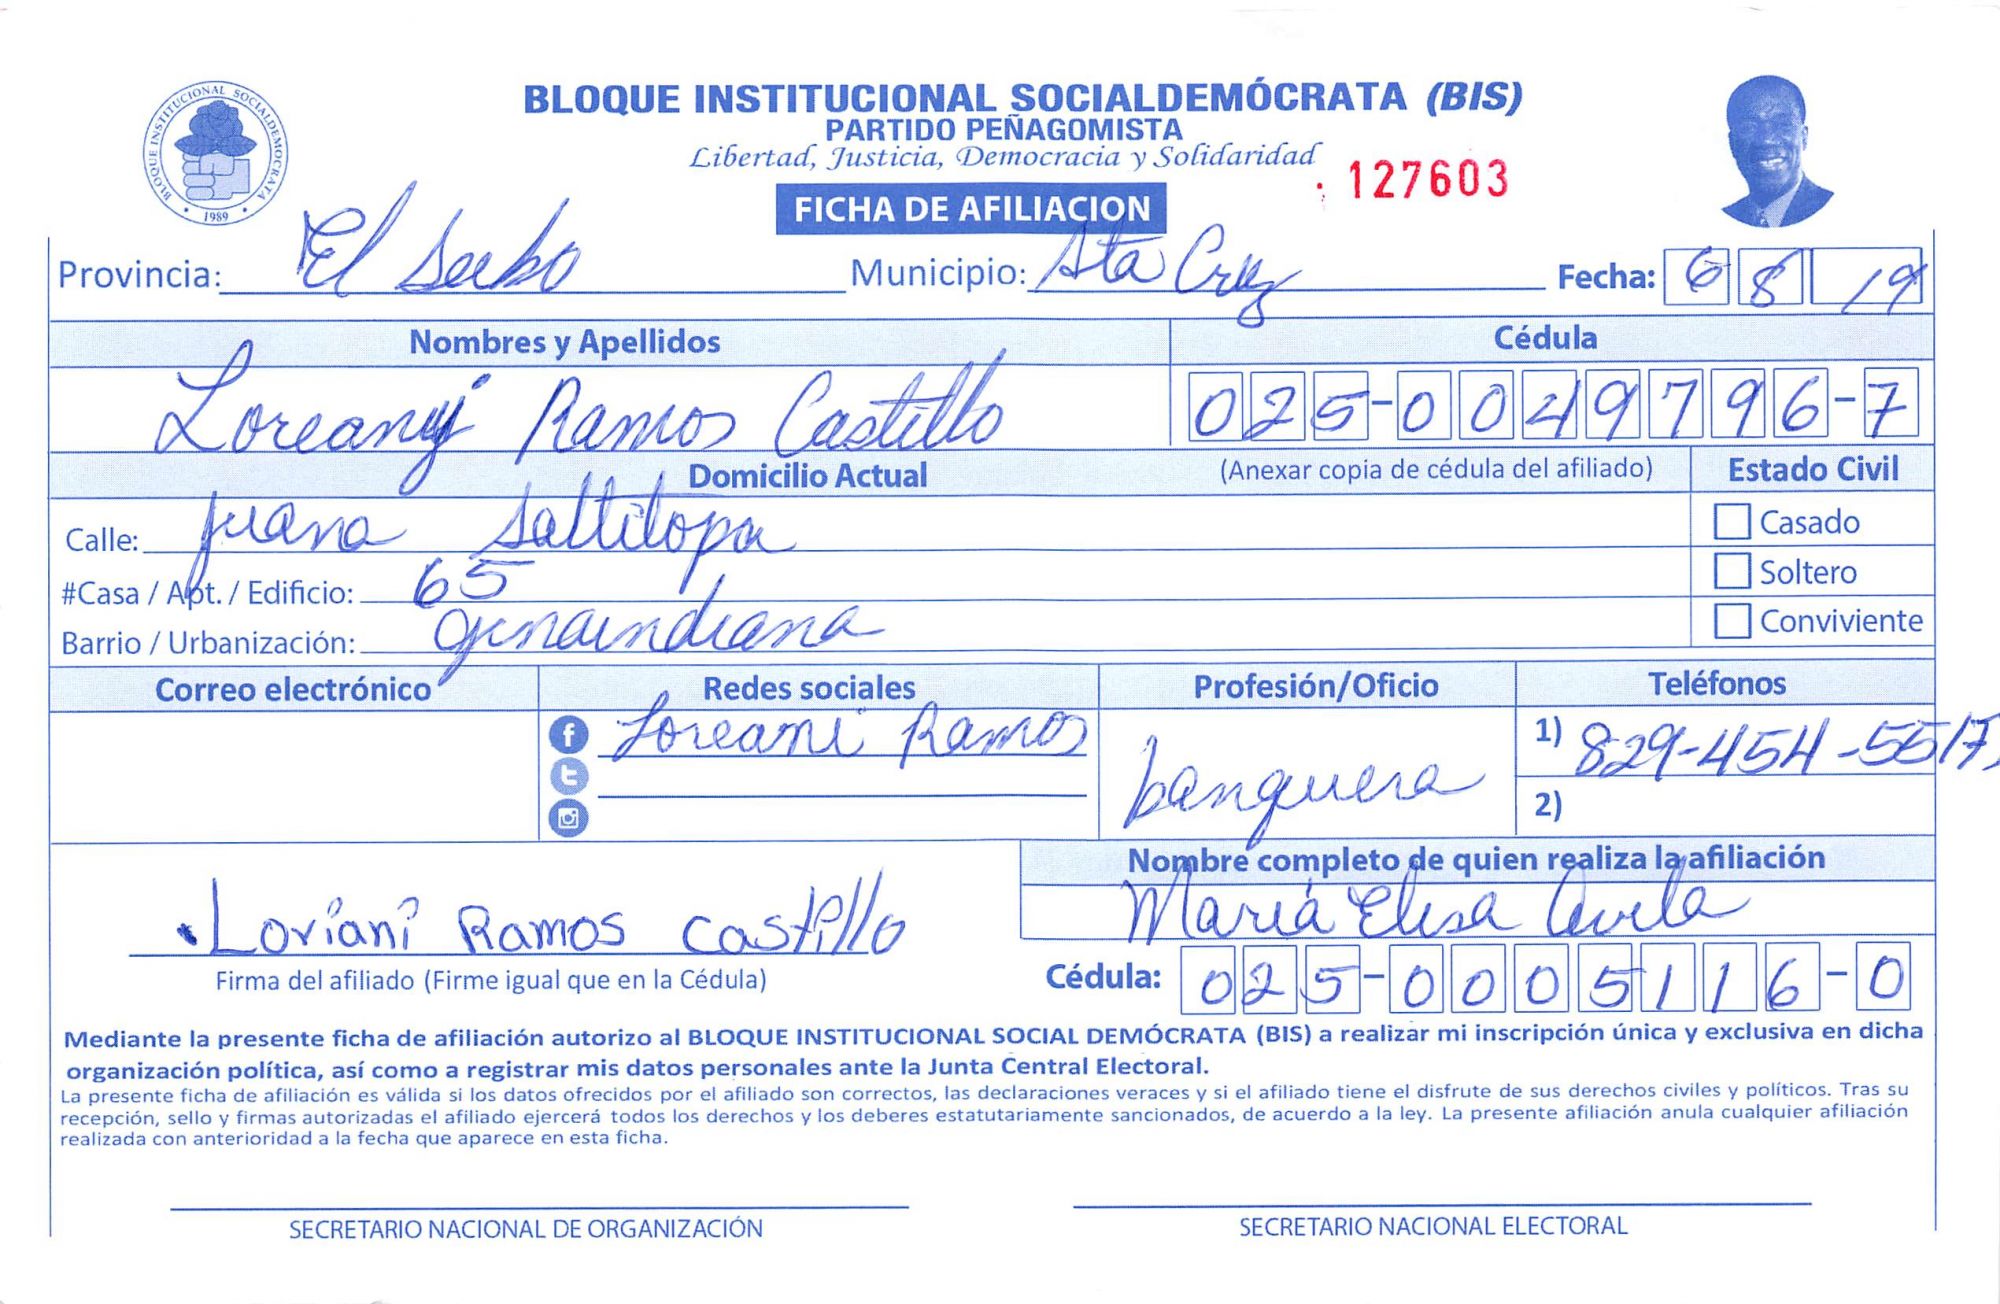 BLOQUE INSTITUCIONAL SOCIALDEMOCRATA
1989
BLOQUE INSTITUCIONAL SOCIALDEMÓCRATA (BIS)
PARTIDO PEÑAGOMISTA
Libertad, Justicia, Democracia y Solidaridad
127603
FICHA DE AFILIACION
Provincia: El Seibo Municipio: Sta Cruz Fecha: 6 8 19
Nombres y Apellidos Cédula
Loreany Ramos Castillo 025-0049796-7
Domicilio Actual (Anexar copia de cédula del afiliado) Estado Civil
Calle: Juana Saltitopa Casado
#Casa / Apt. / Edificio: 65 Soltero
Barrio / Urbanización: Ginaindiana Conviviente
Correo electrónico Redes sociales Profesión/Oficio Teléfonos
Loreani Ramos banquera 1) 829-454-5517
2)
Nombre completo de quien realiza la afiliación
Loriani Ramos Castillo María Elisa Avila
Firma del afiliado (Firme igual que en la Cédula) Cédula: 025-0005116-0
Mediante la presente ficha de afiliación autorizo al BLOQUE INSTITUCIONAL SOCIAL DEMÓCRATA (BIS) a realizar mi inscripción única y exclusiva en dicha
organización política, así como a registrar mis datos personales ante la Junta Central Electoral.
La presente ficha de afiliación es válida si los datos ofrecidos por el afiliado son correctos, las declaraciones veraces y si el afiliado tiene el disfrute de sus derechos civiles y políticos. Tras su
recepción, sello y firmas autorizadas el afiliado ejercerá todos los derechos y los deberes estatutariamente sancionados, de acuerdo a la ley. La presente afiliación anula cualquier afiliación
realizada con anterioridad a la fecha que aparece en esta ficha.
SECRETARIO NACIONAL DE ORGANIZACIÓN SECRETARIO NACIONAL ELECTORAL